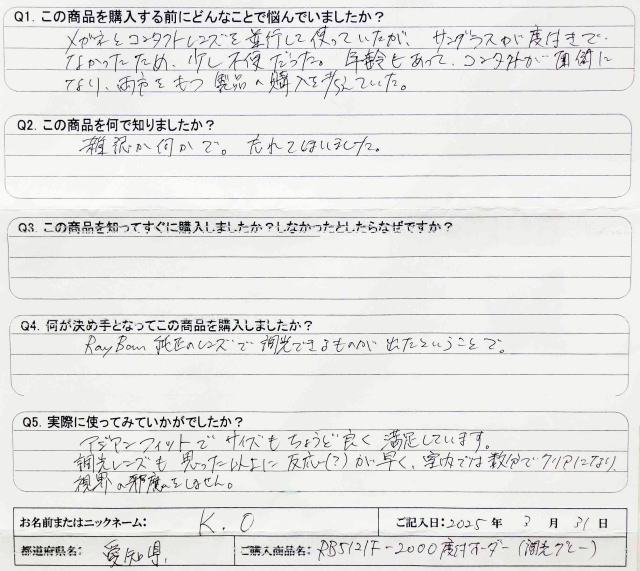 Q1. この商品を購入する前にどんなことで悩んでいましたか？
メガネとコンタクトレンズを並行して使っていたが、サングラスが度付きで
なかったため、少し不便だった。年齢もあって、コンタクトが面倒に
なり、両方をもつ製品への購入を考えていた。
Q2. この商品を何で知りましたか？
雑誌か何かで。忘れてしまいました。
Q3. この商品を知ってすぐに購入しましたか？しなかったとしたらなぜですか？
Q4. 何が決め手となってこの商品を購入しましたか？
RayBan 純正のレンズで調光できるものが出たということで。
Q5. 実際に使ってみていかがでしたか？
アジアンフィットでサイズもちょうど良く満足しています。
調光レンズも思った以上に反応(?)が早く、室内では数分でクリアになり
視界の邪魔をしません。
お名前またはニックネーム： K.O ご記入日：2025 年 3 月 31 日
都道府県名： 愛知県 ご購入商品名：RB5121F-2000 度付オーダー (調光グレー)